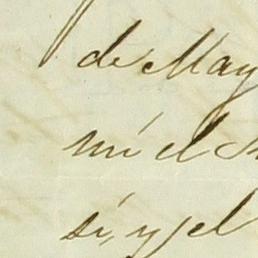 de May
mi el
si, y el